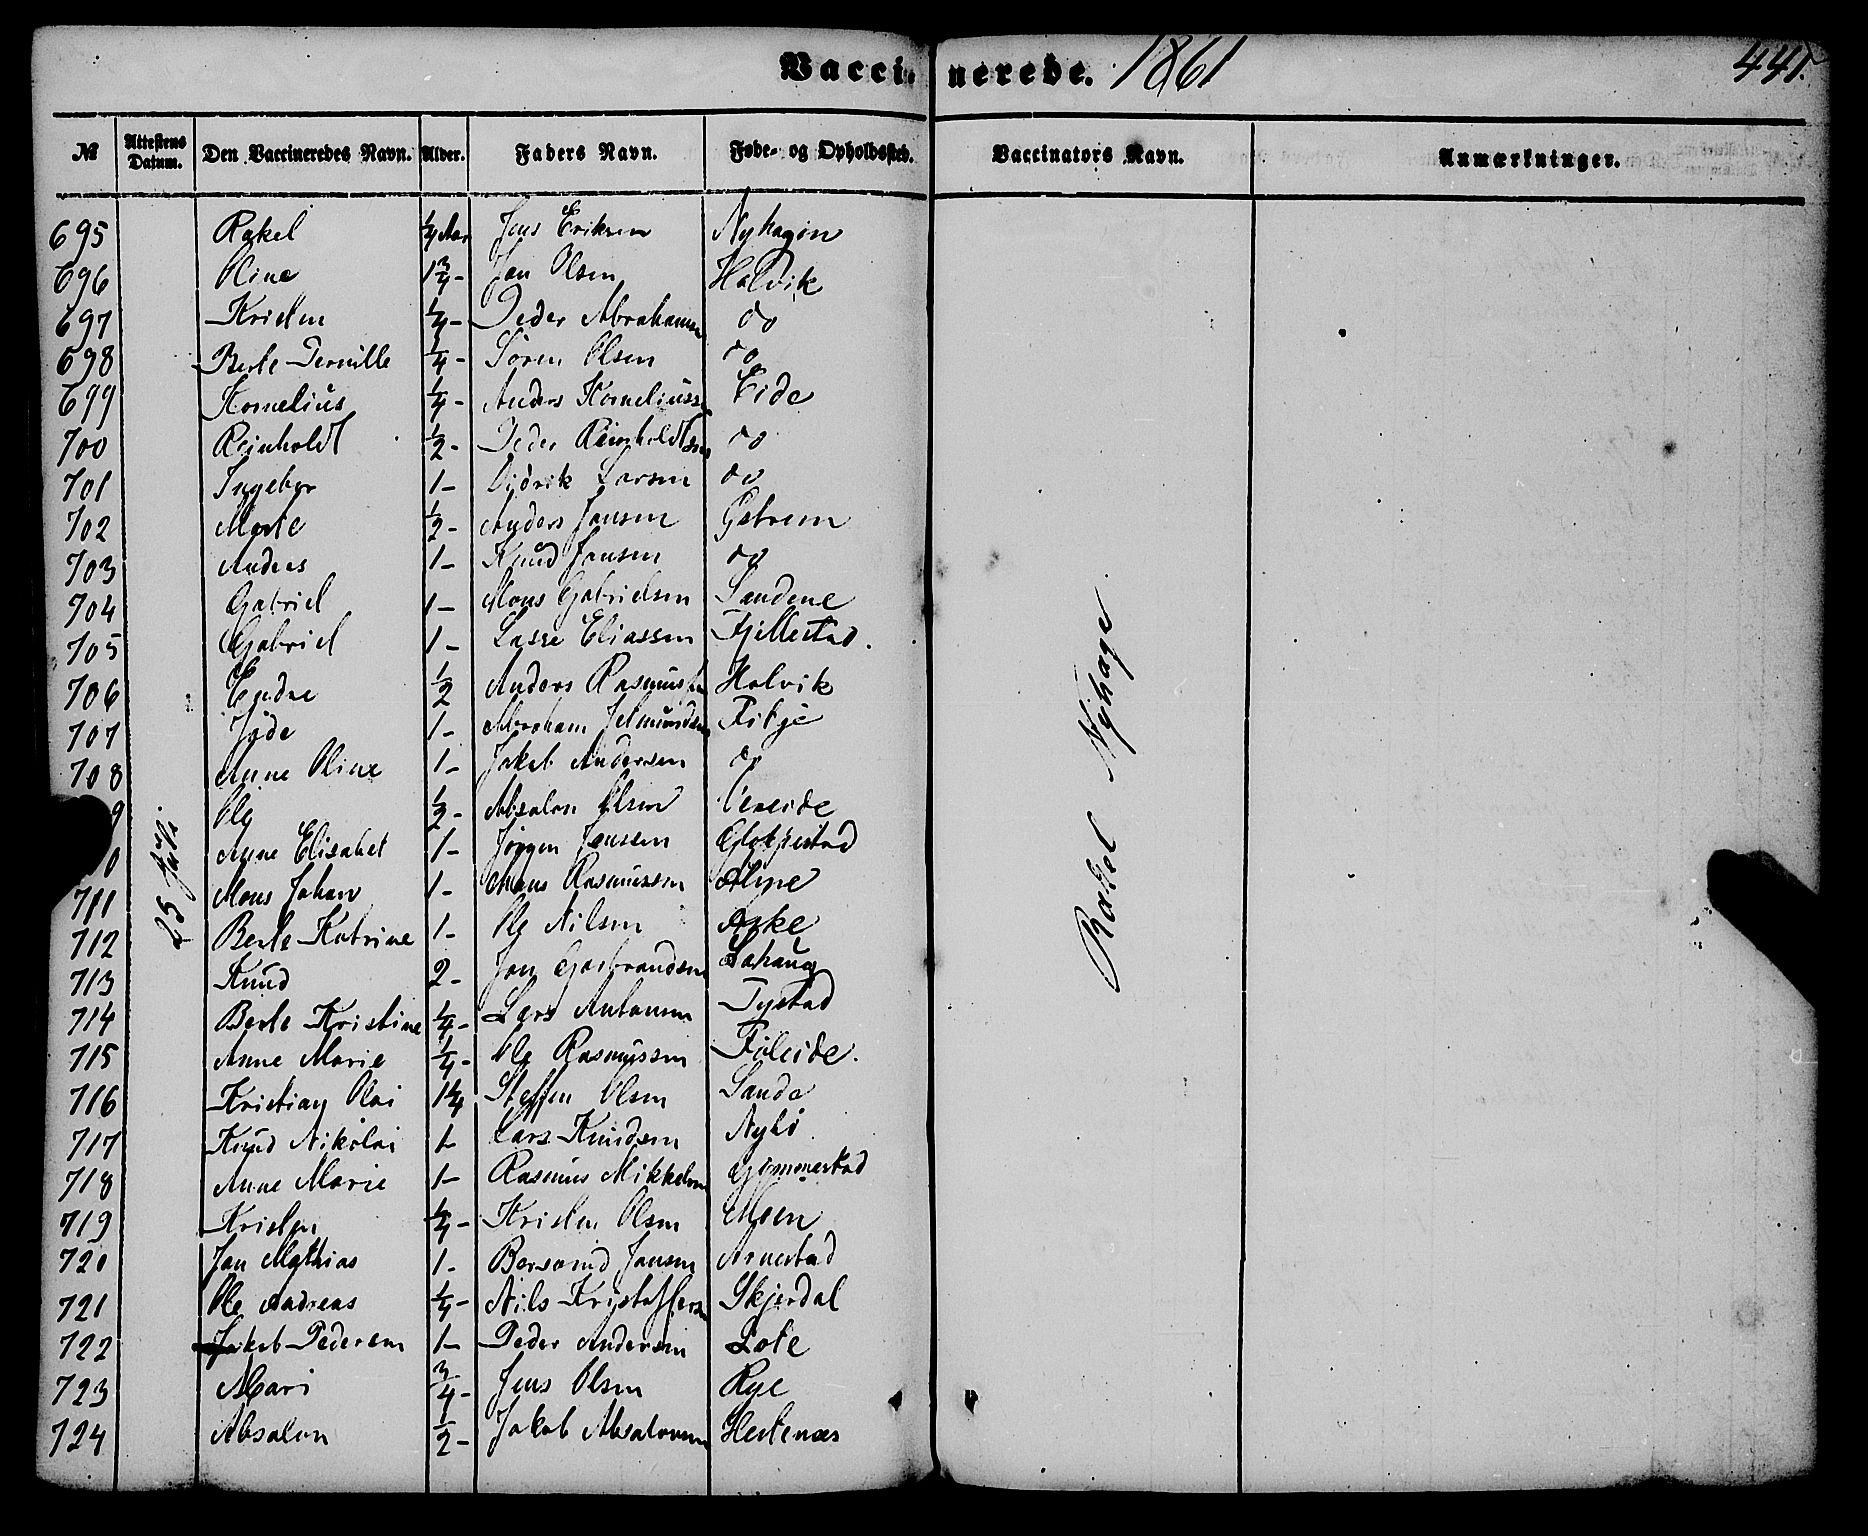 Vaccinerede. 1861
441.
№ Attestens Datum. Den Vaccineredes Navn. Alder. Faders Navn. Føde- og Opholdssted. Vaccinators Navn. Anmærkninger.
695 Rakel 1/4 Aar Jens Eriksen Nyhagin
696 Oline 1 3/4 - Jon Olsen Holvik
697 Kristen 1/4 - Peder Abrahamsen do
698 Berte Pernille 1/4 - Søren Olsen do
699 Kornelius 1/4 - Anders Korneliuss Eide
700 Reinholdt 1/2 - Peder Reinholdtsen do
701 Ingebor 1 - Didrik Larsen do
702 Marte 1/2 - Anders Jansen Gstrem
703 Anders 1 - Knud Jansen do
704 Gabriel 1 - Mons Gabrielsen Sandene
705 Gabriel 1 - Lasse Eliassen Fjellestad.
706 Endre 1/2 Anders Rasmussen Holvik
707 1 - Abraham Fitje
708 Anne Oline 1 - Jakob Andersen do
9 Ole 1/2 - Absalon Olsen Vereide
0 Anne Elisabet 1 - Jørgen Jenssen
711 Mons Johan 1 - Mons Rasmussen
712 Berte Katrine 1 - Ole Nilsen Aske
713 Knud 2 - Jon Gerbrandsen Lahaug
714 Berte Kristine 1/4 - Lars Antonsen Tystad
715 Anne Marie 1/4 - Ole Rasmussen Føleide.
716 Kristian Olai 1 1/4 Steffen Olsen Sande
717 Knud Nikolai 1 - Lars Knudsen Nybø
718 Anne Marie 1 - Rasmus Mikkelsen Gimmestad
719 Kristen 1/4 - Kristen Olsen Moen
720 Jon Mathias 1 - Jansen Arnestad
721 Ole Andreas 1/4 - Nils Kristoffers Skjerdal
722 Jakob Pedersen 1 - Peder Andersen Lote
723 Mari 3/4 - Jens Olsen Rye
724 Absalon 1/2 - Jakob Absalonsen Hestenæs
25 Juli.
Rakel Nyhage